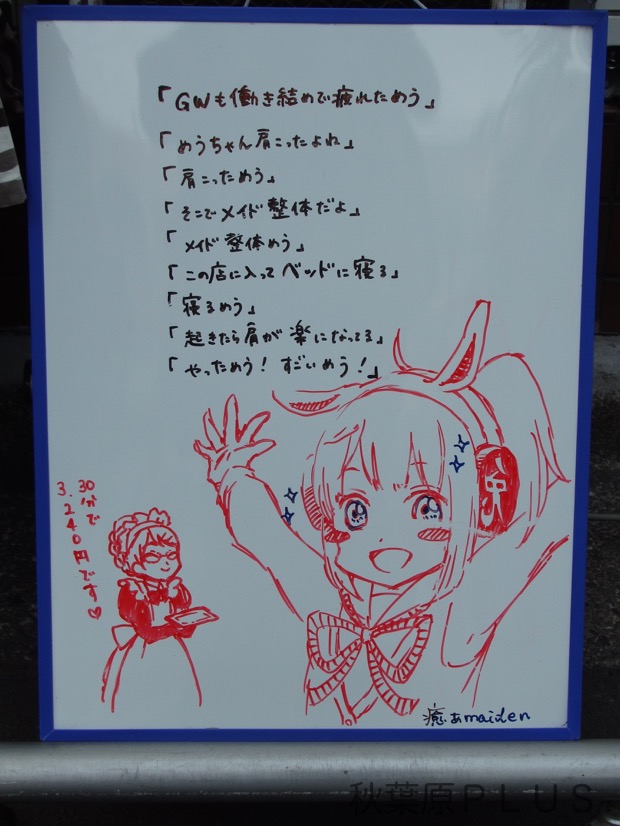 「GWも働き結めで疲れためう」
「めうちゃん肩こったよね」
「肩こっためう」
「そこでメイド整体だよ」
「メイド整体めう」
「この店に入ってベッドに寝る」
「寝るめう」
「起きたら肩が楽になってる」
「やっためう！すごいめう！」
30分で
3.240円です♡
癒あmaiden
秋葉原PLUS